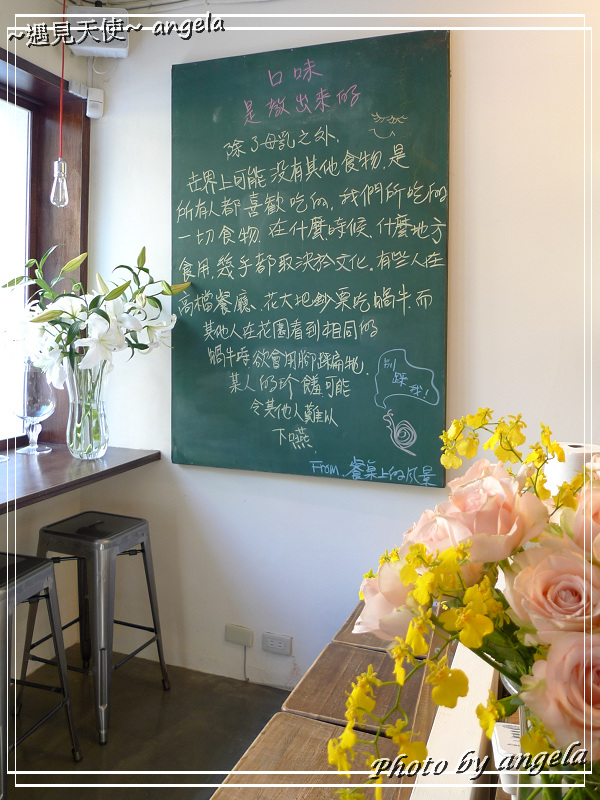 ~遇見天使~ angela
口味
是放出來的
除了母乳之外,
世界上可能沒有其他食物,是
所有人都喜歡吃的,我們所吃的
一切食物,在什麼時候,什麼地方
食用,幾乎都取決於文化,有些人在
高檔餐廳、花大把鈔票吃蝸牛,而
其他人在花園看到相同的
蝸牛時,欲會用腳踩扁牠,
某人的佳餚可能
令其他人難以
下嚥
別
踩我!
From 餐桌上的風景
Photo by angela